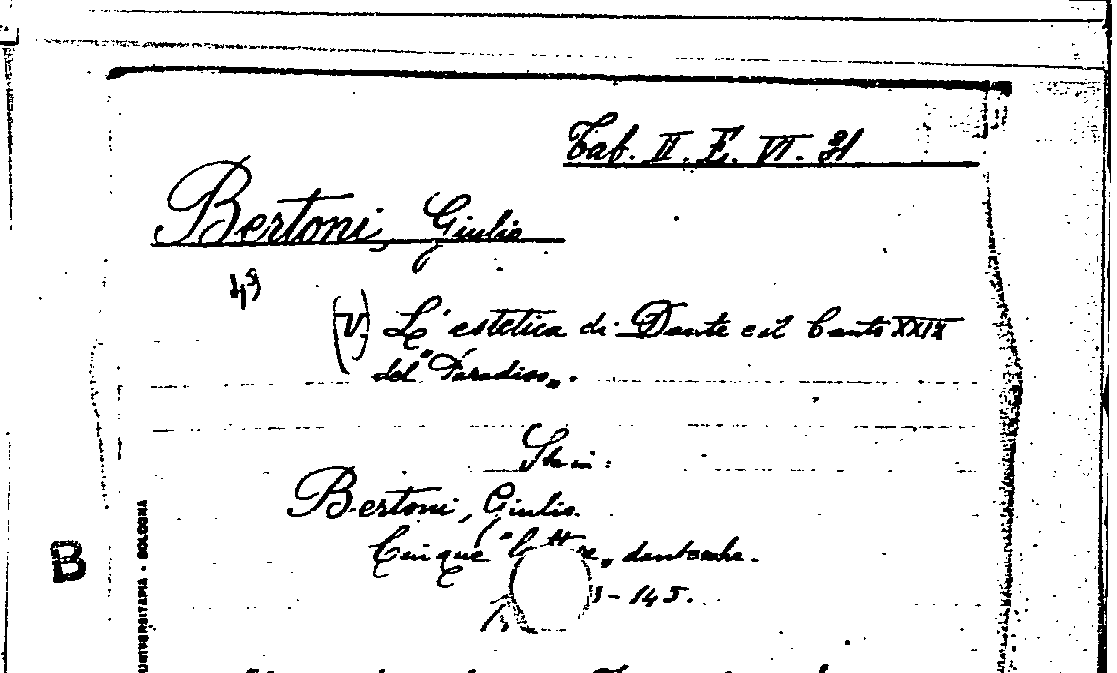 Tab. II. E. VI. 31
Bertoni, Giulio
49
(V) L'estetica di Dante e il Canto XXIX
del "Paradiso„.
Sta in:
Bertoni, Giulio.
Cinque "letture„ dantesche.
- 145.
B
UNIVERSITARIA • BOLOGNA